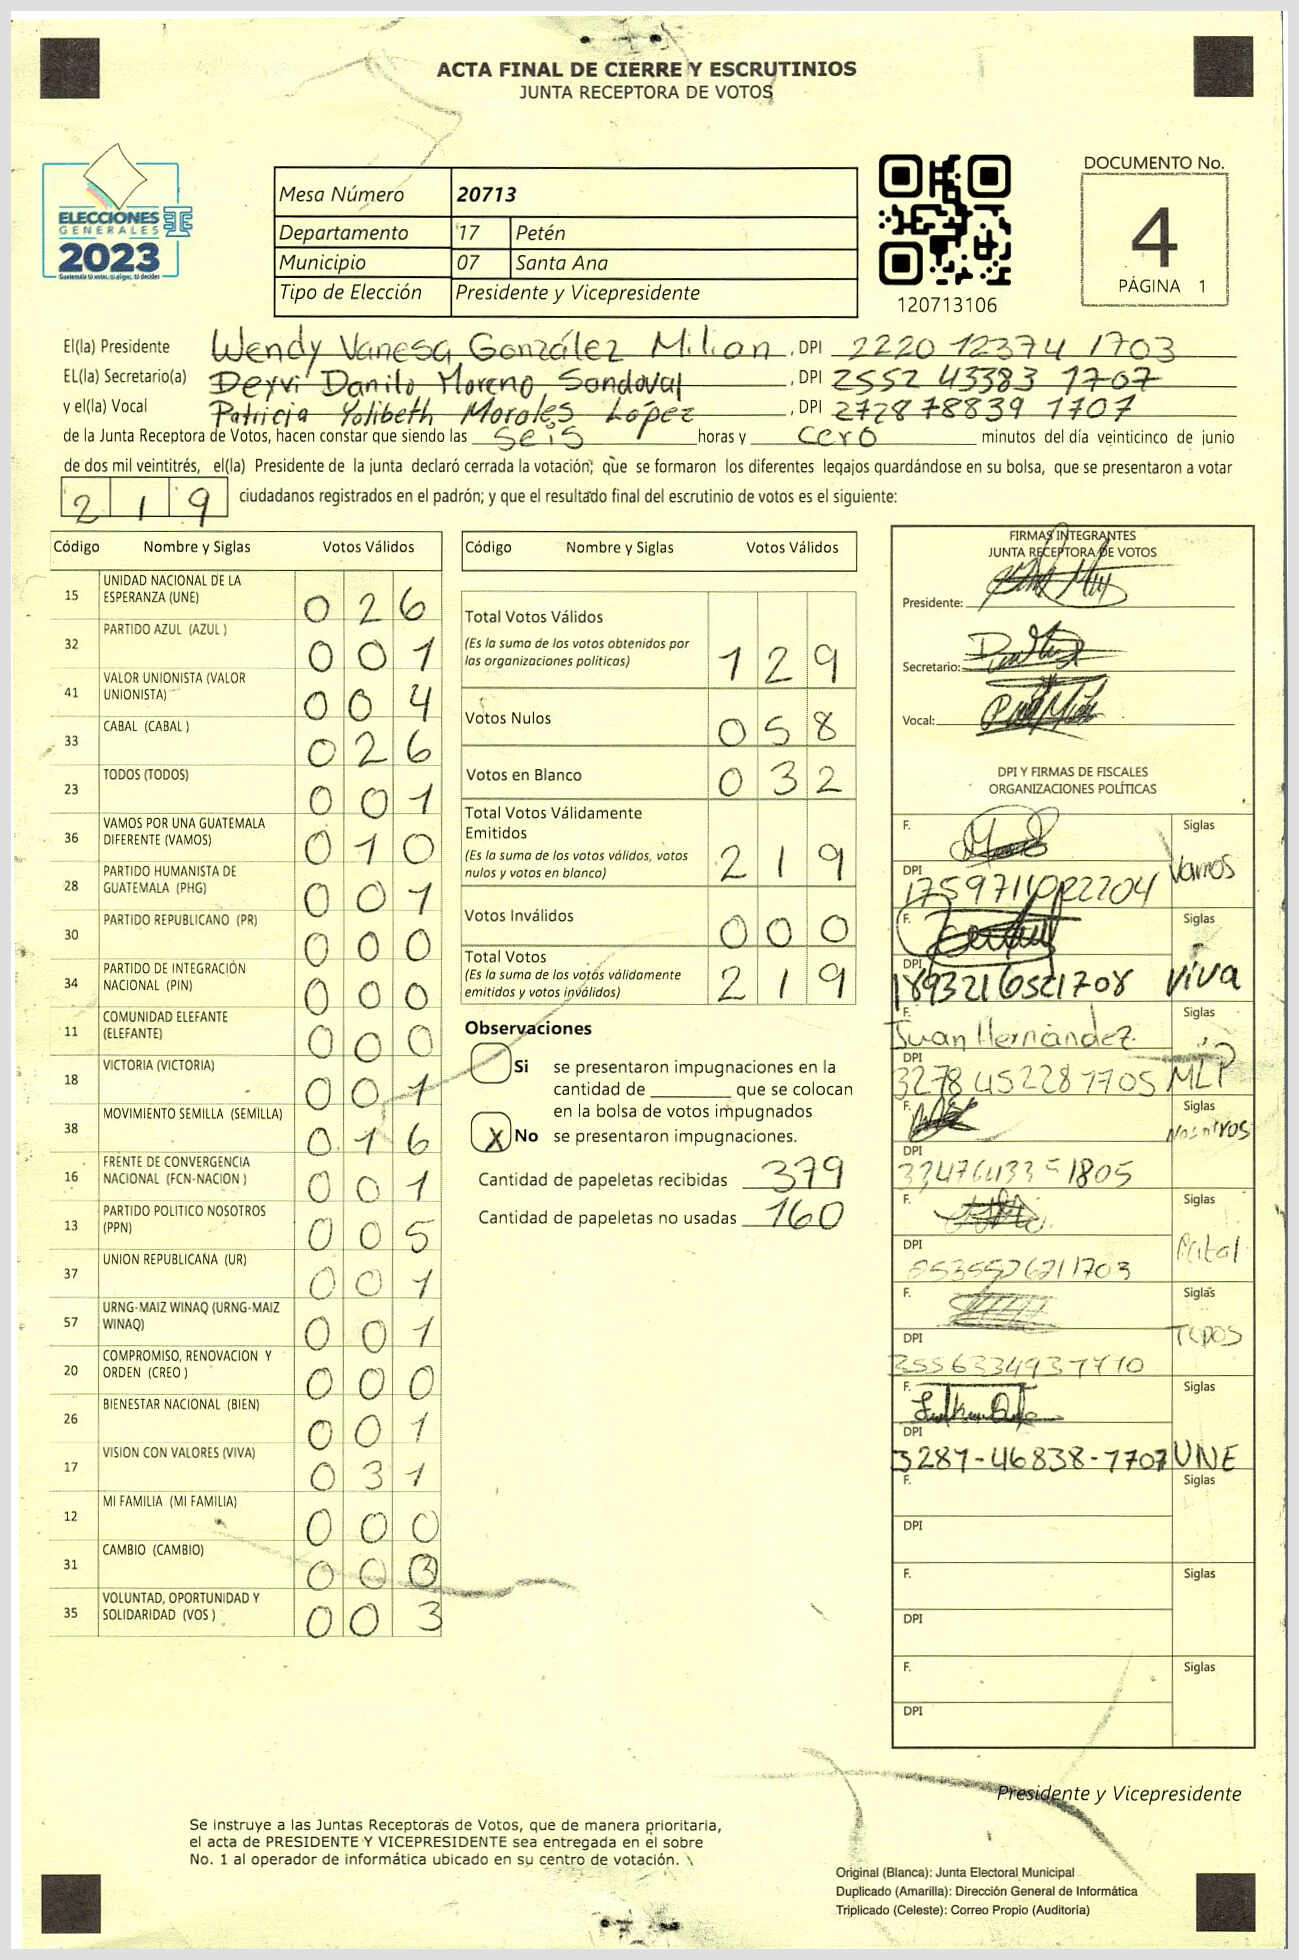 ACTA FINAL DE CIERRE Y ESCRUTINIOS
JUNTA RECEPTORA DE VOTOS
ELECCIONES
GENERALES
2023
Mesa Número 20713
Departamento 17 Petén
Municipio 07 Santa Ana
Tipo de Elección Presidente y Vicepresidente
120713106
DOCUMENTO No.
4
PÁGINA 1
El(la) Presidente Wendy Vanesa González Milian , DPI 2220 12374 1703
EL(la) Secretario(a) Deyvi Danilo Moreno Sandoval , DPI 2552 43383 1707
y el(la) Vocal Patricia Yolibeth Morales López , DPI 2728 78839 1707
de la Junta Receptora de Votos, hacen constar que siendo las seis horas y cero minutos del día veinticinco de junio
de dos mil veintitrés, el(la) Presidente de la junta declaró cerrada la votación; que se formaron los diferentes legajos guardándose en su bolsa, que se presentaron a votar
2 1 9 ciudadanos registrados en el padrón; y que el resultado final del escrutinio de votos es el siguiente:
Código Nombre y Siglas Votos Válidos
15 UNIDAD NACIONAL DE LA ESPERANZA (UNE) 0 2 6
32 PARTIDO AZUL (AZUL ) 0 0 1
41 VALOR UNIONISTA (VALOR UNIONISTA) 0 0 4
33 CABAL (CABAL ) 0 2 6
23 TODOS (TODOS) 0 0 1
36 VAMOS POR UNA GUATEMALA DIFERENTE (VAMOS) 0 1 0
28 PARTIDO HUMANISTA DE GUATEMALA (PHG) 0 0 1
30 PARTIDO REPUBLICANO (PR) 0 0 0
34 PARTIDO DE INTEGRACIÓN NACIONAL (PIN) 0 0 0
11 COMUNIDAD ELEFANTE (ELEFANTE) 0 0 0
18 VICTORIA (VICTORIA) 0 0 1
38 MOVIMIENTO SEMILLA (SEMILLA) 0 1 6
16 FRENTE DE CONVERGENCIA NACIONAL (FCN-NACION ) 0 0 1
13 PARTIDO POLITICO NOSOTROS (PPN) 0 0 5
37 UNION REPUBLICANA (UR) 0 0 1
57 URNG-MAIZ WINAQ (URNG-MAIZ WINAQ) 0 0 1
20 COMPROMISO, RENOVACION Y ORDEN (CREO ) 0 0 0
26 BIENESTAR NACIONAL (BIEN) 0 0 1
17 VISION CON VALORES (VIVA) 0 3 1
12 MI FAMILIA (MI FAMILIA) 0 0 0
31 CAMBIO (CAMBIO) 0 0
35 VOLUNTAD, OPORTUNIDAD Y SOLIDARIDAD (VOS ) 0 0 3
Código Nombre y Siglas Votos Válidos
Total Votos Válidos
(Es la suma de los votos obtenidos por
las organizaciones políticas) 1 2 9
Votos Nulos 0 5 8
Votos en Blanco 0 3 2
Total Votos Válidamente
Emitidos
(Es la suma de los votos válidos, votos
nulos y votos en blanco) 2 1 9
Votos Inválidos 0 0 0
Total Votos
(Es la suma de los votos válidamente
emitidos y votos inválidos) 2 1 9
Observaciones
Si se presentaron impugnaciones en la
cantidad de ________ que se colocan
en la bolsa de votos impugnados
X No se presentaron impugnaciones.
Cantidad de papeletas recibidas 379
Cantidad de papeletas no usadas 160
FIRMAS INTEGRANTES
JUNTA RECEPTORA DE VOTOS
Presidente:
Secretario:
Vocal:
DPI Y FIRMAS DE FISCALES
ORGANIZACIONES POLÍTICAS
F. Siglas
DPI Vamos
F. Siglas
DPI viva
F. Juan Hernández Siglas
DPI 3278 45228 1705 MLP
F. Siglas
DPI Nosotros
F. Siglas
DPI
F. Siglas
DPI Todos
F. Siglas
DPI 3287-46838-1707 UNE
F. Siglas
DPI
F. Siglas
DPI
F. Siglas
DPI
Presidente y Vicepresidente
Se instruye a las Juntas Receptoras de Votos, que de manera prioritaria,
el acta de PRESIDENTE Y VICEPRESIDENTE sea entregada en el sobre
No. 1 al operador de informática ubicado en su centro de votación.
Original (Blanca): Junta Electoral Municipal
Duplicado (Amarilla): Dirección General de Informática
Triplicado (Celeste): Correo Propio (Auditoría)